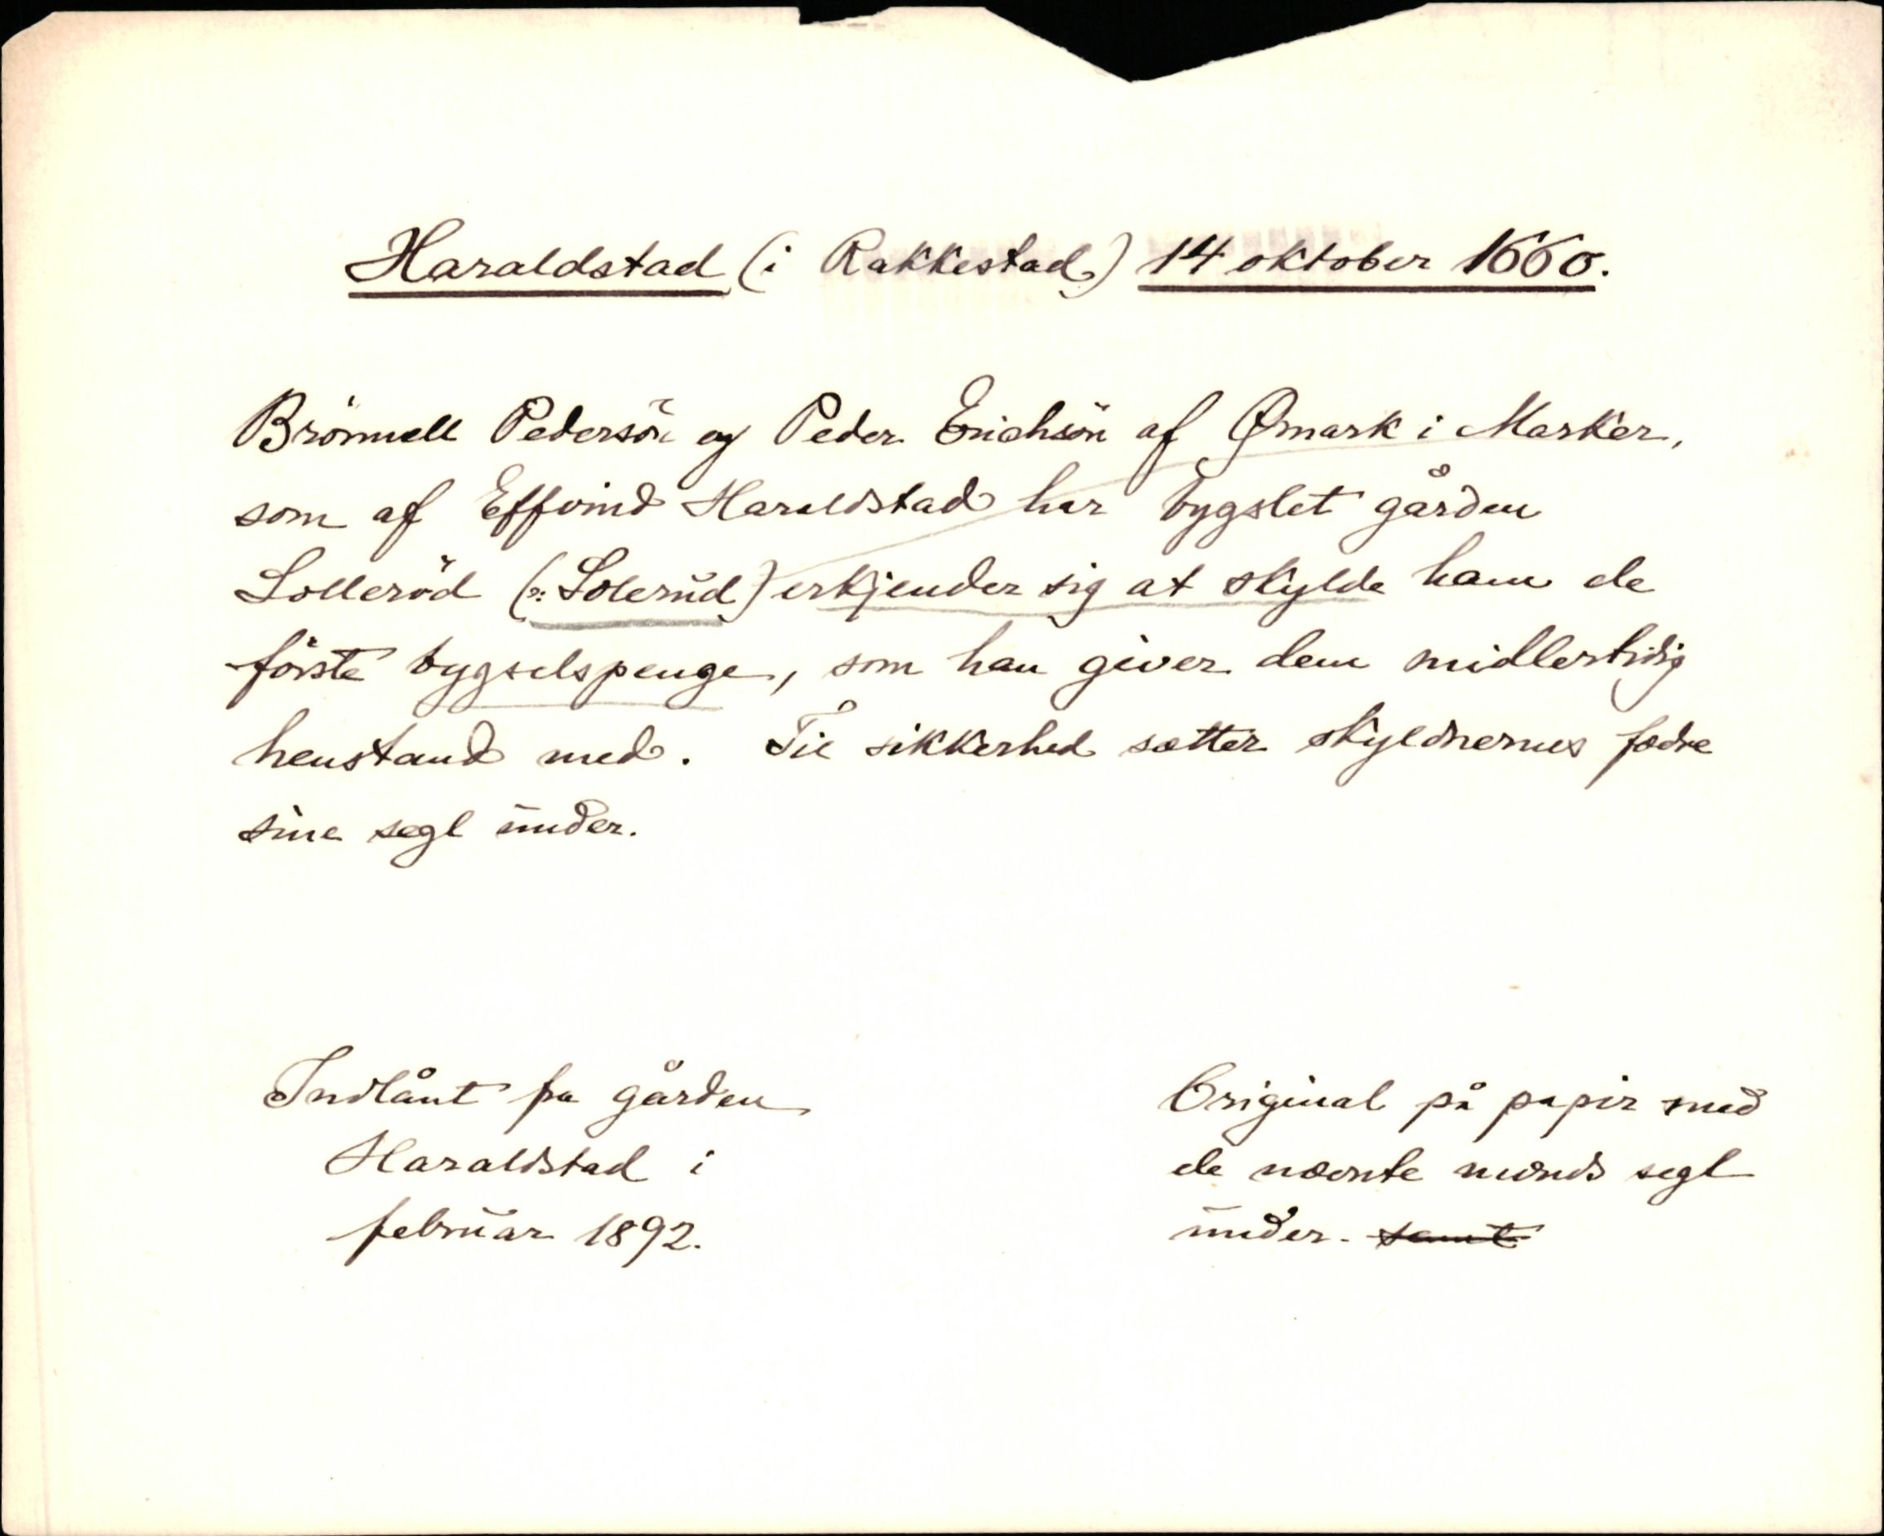 Haraldstad (i Rakkestad) 14 oktober 1660.
Brönnell Pedersön og Peder Erichsön af Ømark i Marker,
som af Effvind Haraldstad har bygslet gården
Solleröd (ɔ: Solerud) erkjender sig at skylde ham de
förste bygselspenge, som han giver dem midlertidig
henstand med. Til sikkerhed sætter skyldnernes fædre
sine segl under.
Indlånt fra gården
Haraldstad i
februar 1892.
Original på papir med
de nævnte mænds segl
under. samt